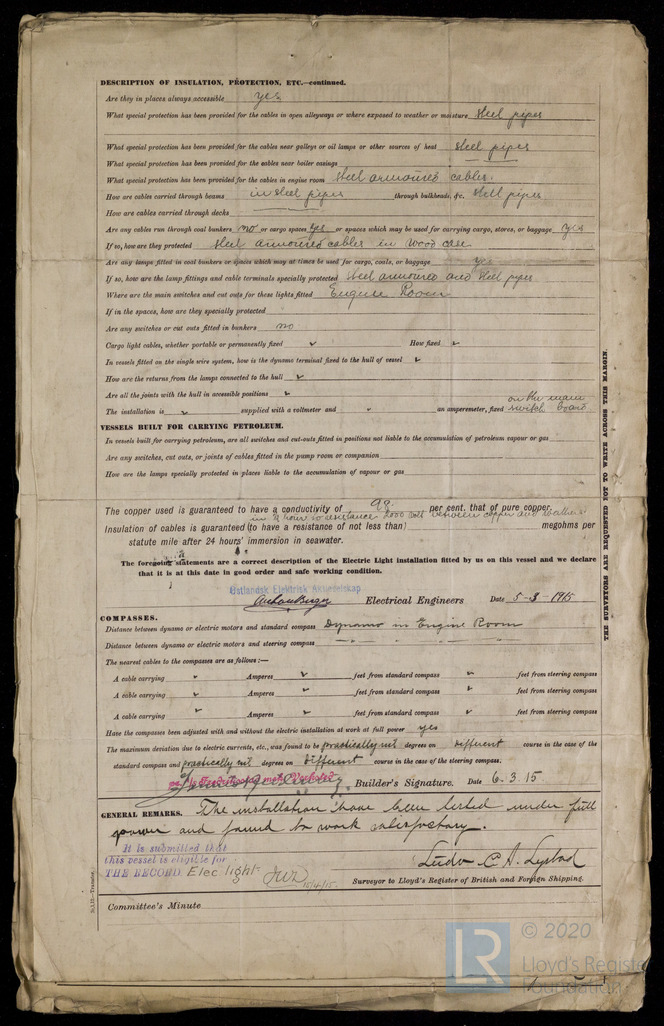 DESCRIPTION OF INSULATION, PROTECTION, ETC.—continued.
Are they in places always accessible yes
What special protection has been provided for the cables in open alleyways or where exposed to weather or moisture steel pipes
What special protection has been provided for the cables near galleys or oil lamps or other sources of heat steel pipes
What special protection has been provided for the cables near boiler casings
What special protection has been provided for the cables in engine room steel armoured cables.
How are cables carried through beams in steel pipes through bulkheads, &c. steel pipes
How are cables carried through decks
Are any cables run through coal bunkers no or cargo spaces yes or spaces which may be used for carrying cargo, stores, or baggage yes
If so, how are they protected steel armoured cables in wood case
Are any lamps fitted in coal bunkers or spaces which may at times be used for cargo, coals, or baggage yes
If so, how are the lamp fittings and cable terminals specially protected steel armoured and steel pipes
Where are the main switches and cut outs for these lights fitted Engine Room
If in the spaces, how are they specially protected
Are any switches or cut outs fitted in bunkers no
Cargo light cables, whether portable or permanently fixed ✓ How fixed ✓
In vessels fitted on the single wire system, how is the dynamo terminal fixed to the hull of vessel ✓
How are the returns from the lamps connected to the hull ✓
Are all the joints with the hull in accessible positions ✓
The installation is ✓ supplied with a voltmeter and " an amperemeter, fixed on the main switch board
VESSELS BUILT FOR CARRYING PETROLEUM.
In vessels built for carrying petroleum, are all switches and cut-outs fitted in positions not liable to the accumulation of petroleum vapour or gas
Are any switches, cut outs, or joints of cables fitted in the pump room or companion
How are the lamps specially protected in places liable to the accumulation of vapour or gas
The copper used is guaranteed to have a conductivity of 98 per cent. that of pure copper.
Insulation of cables is guaranteed (to have a resistance of not less than) megohms per
statute mile after 24 hours' immersion in seawater.
The foregoing statements are a correct description of the Electric Light installation fitted by us on this vessel and we declare
that it is at this date in good order and safe working condition.
Østlandsk Elektrisk Aktieselskap
Electrical Engineers Date 5-3-1915
COMPASSES.
Distance between dynamo or electric motors and standard compass Dynamo in Engine Room
Distance between dynamo or electric motors and steering compass — " — " — " —
The nearest cables to the compasses are as follows:—
A cable carrying " Amperes ✓ feet from standard compass ✓ feet from steering compass
A cable carrying ✓ Amperes ✓ feet from standard compass ✓ feet from steering compass
A cable carrying ✓ Amperes ✓ feet from standard compass ✓ feet from steering compass
Have the compasses been adjusted with and without the electric installation at work at full power yes
The maximum deviation due to electric currents, etc., was found to be practically nil degrees on different course in the case of the
standard compass and practically nil degrees on different course in the case of the steering compass.
Builder's Signature. Date 6.3.15.
GENERAL REMARKS. The installation have been tested under full
power and found to work satisfactory.
It is submitted that
this vessel is eligible for
THE RECORD. Elec light
JWD 15/4/15.
Surveyor to Lloyd's Register of British and Foreign Shipping.
Committee's Minute
THE SURVEYORS ARE REQUESTED NOT TO WRITE ACROSS THIS MARGIN.
LR
© 2020
Lloyd's Register
Foundation